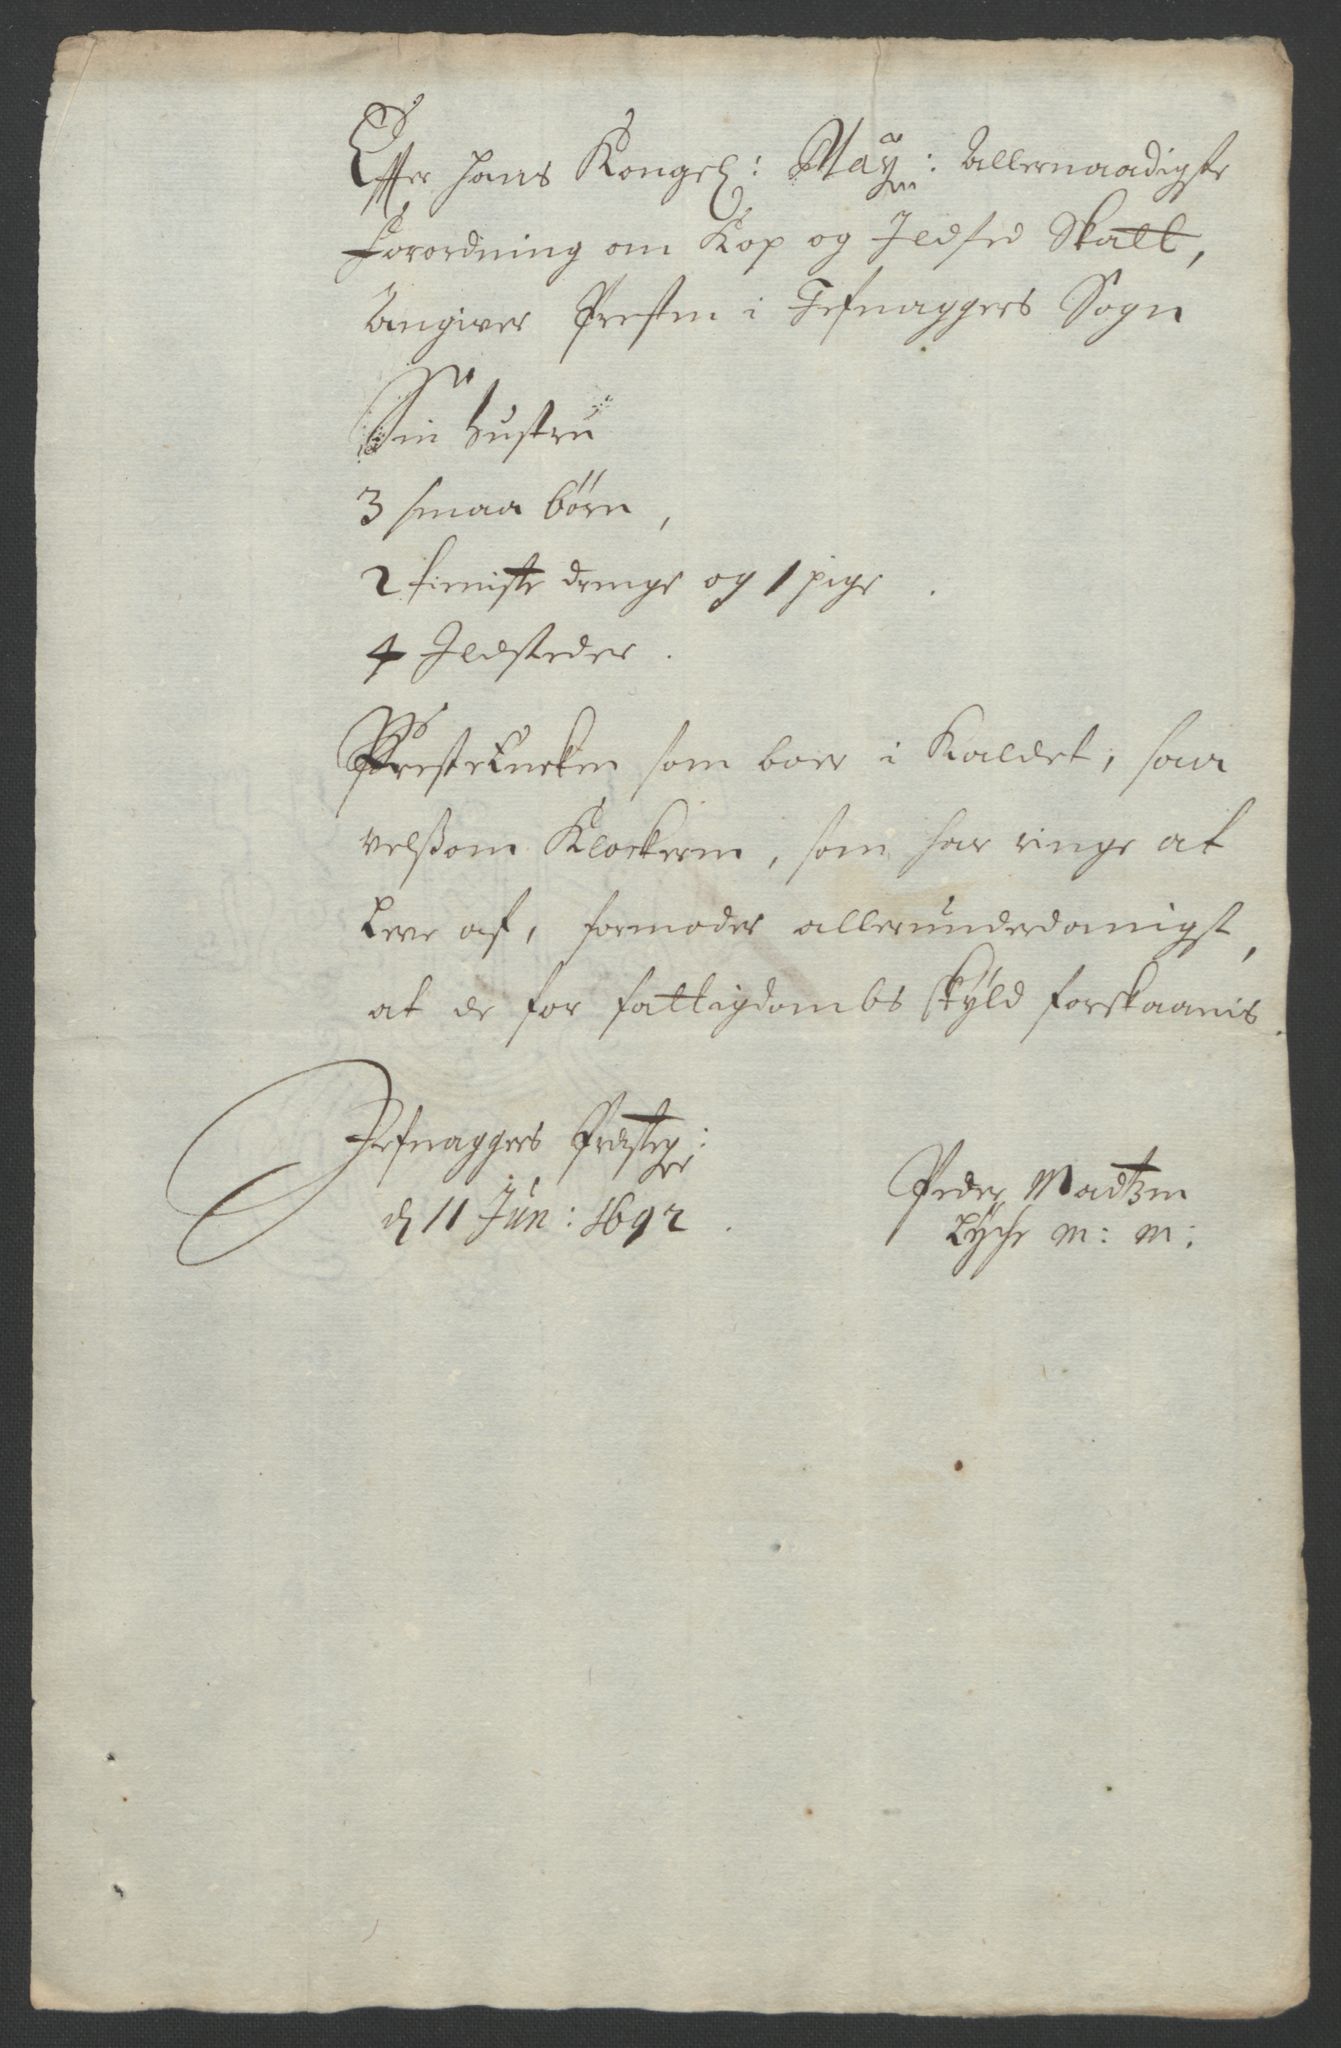 Effter Hans Kongel: May: Allernaadigste
Forordning om Kop og Ildsted Skatt,
Angiver Presten i Jefnaggers Sogn
Sin Hustru
3 smaa børn,
2 tieniste drenge og 1 pige.
4 Ildsteder.
PresteEncken som boer i Kaldet, saa
velßom Klockeren, som har ringe at
Leve af, formoder allerunderdanigst,
at de for fattigdombs skyld forskaanis.
Jefnaggers Præsteg:
d 11 Jun: 1692.
Peder Madtzen
Lyche m: m: